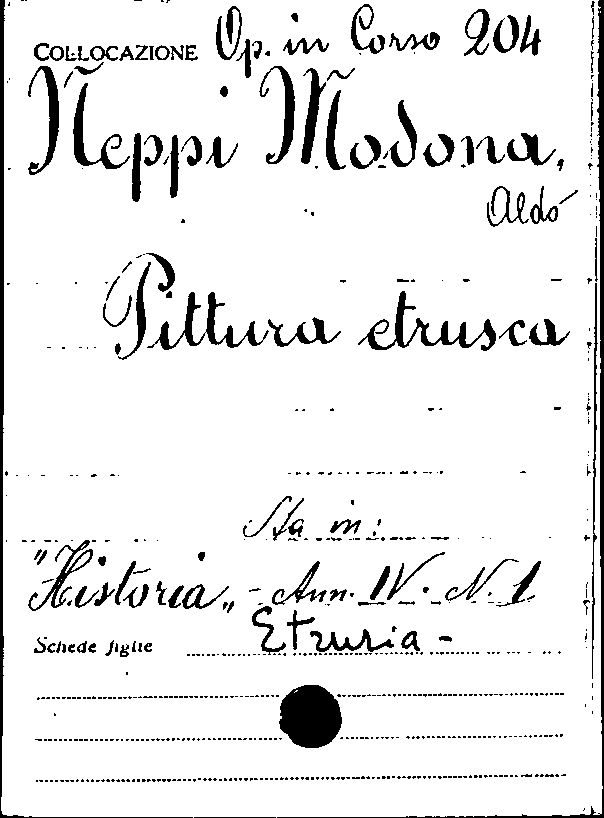 COLLOCAZIONE Op. in Corso 204
Neppi Modona,
Aldo
Pittura etrusca
Sta in:
"Historia„ - Ann. IV. N. 1
Schede figlie Etruria -